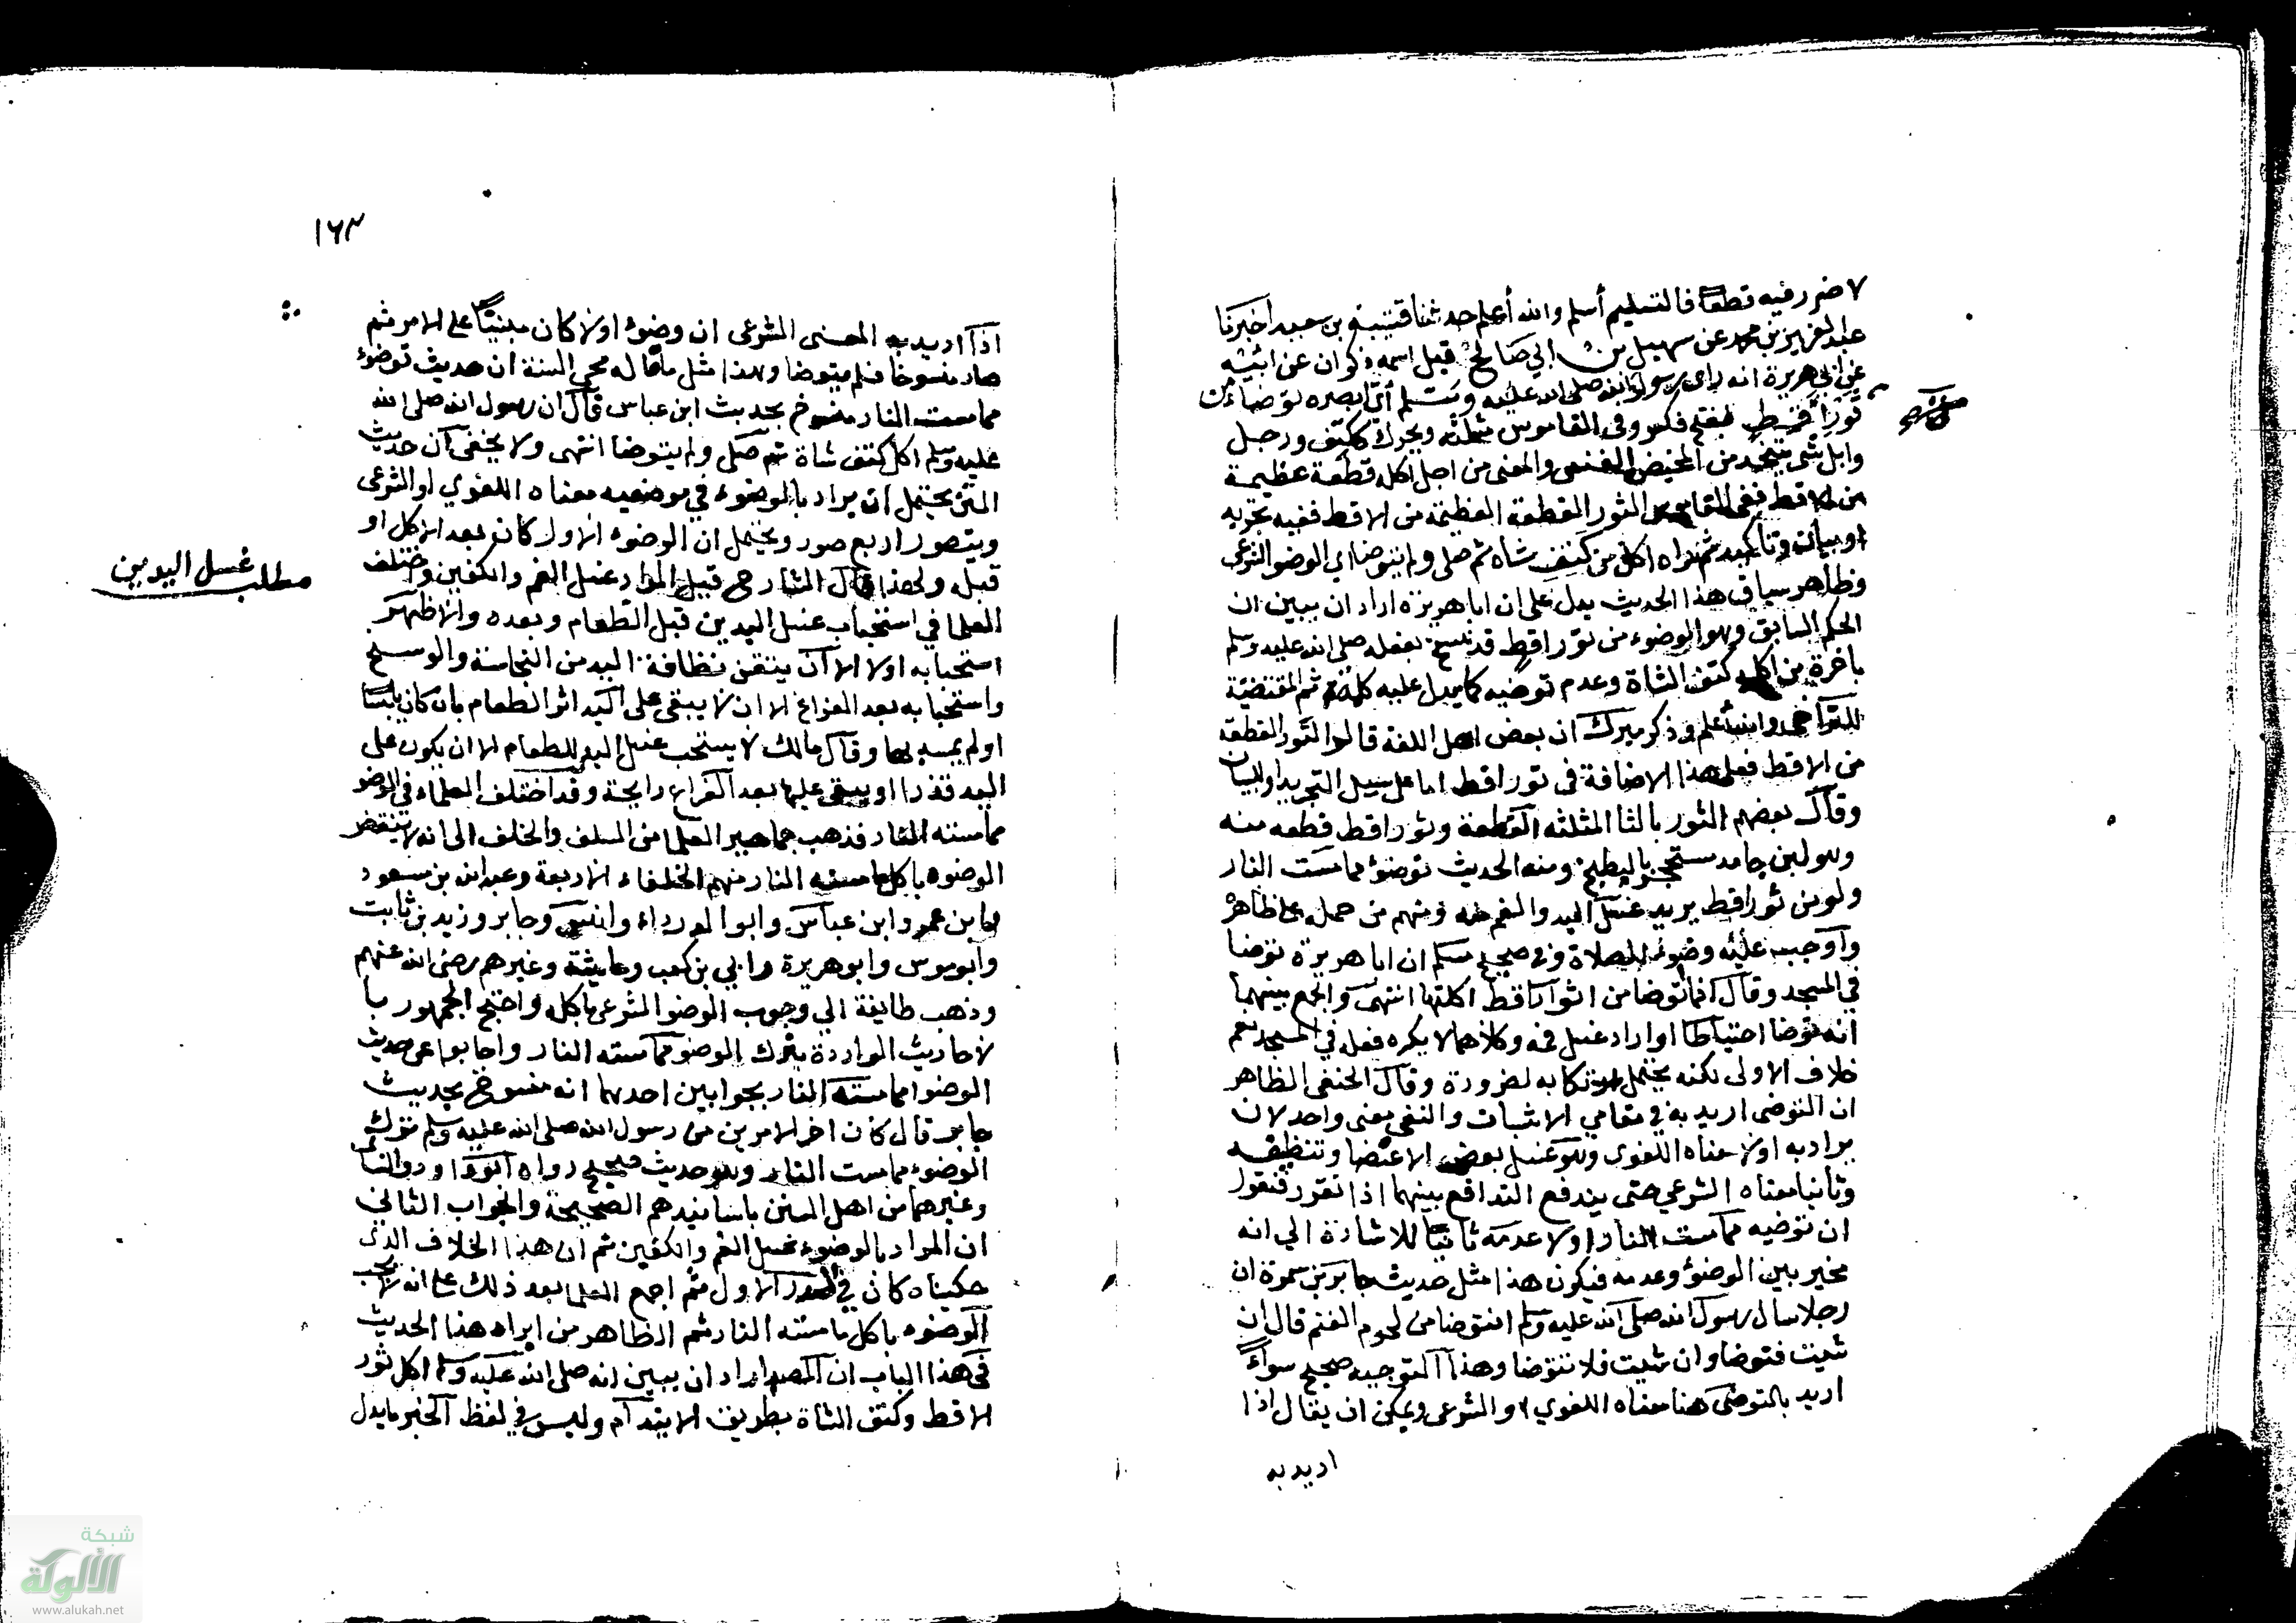 لا ضرر فيه قطعا فالتسليم أسلم والله أعلم حدثنا قتيبة بن سعيد اخبرنا
عبد العزيز بن محمد عن سهيل بن ابي صالح قيل اسمه ذكوان عن ابيه
عن ابي هريرة انه راى رسول الله صلى الله عليه وسلم أي ابصره توضأ من
ثور اقط بفتح فكسر وفي القاموس مثلثة ويحرك ككتف ورجل
وابل شئ يتخذ من المخيض الغنمي والمعنى من اجل اكله قطعة عظيمة
من الاقط ففي القاموس الثور القطعة العظيمة من الاقط ففيه تجريد
او بيان وتأكيد ثم راه اكل من كتف شاة ثم صلى ولم يتوضا اي الوضو الشرعي
وظاهر سياق هذا الحديث يدل على ان ابا هريرة اراد ان يبين ان
الحكم السابق وهو الوضوء من ثور اقط قد نسخ بفعله صلى الله عليه وسلم
باخرة من اكله كتف الشاة وعدم توضيه كما يدل عليه كلمة ثم المقتضية
للتراخي والله أعلم وذكر ميرك ان بعض اهل اللغة قالوا الثور القطعة
من الاقط فعلى هذا الاضافة في ثور اقط اما على سبيل التجريد او البيان
وقال بعضهم الثور بالثا المثلثة القطعة وثور اقط قطعه منه
وهو لبن جامد مستحجر بالطبخ ومنه الحديث توضؤ مما مست النار
ولو من ثور اقط يريد غسل اليد والفم منه ومنهم من حمله على ظاهره
واوجب عليه وضوء الصلاة وفي صحيح مسلم ان ابا هريرة توضا
في المسجد وقال انما توضا من اثوار اقط اكلتها انتهى والجمع بينهما
انه توضا احتياطا او اراد غسل فمه وكلاهما لا يكره فعله في المسجد نعم
خلاف الاولى لكنه يحتمل ارتكابه لضرورة وقال الحنفي الظاهر
ان التوضى اريد به في مقامي الاثبات والنفي معنى واحد لان
يراد به اولا معناه اللغوى وهو غسل بعض الاعضا وتنظيفه
وثانيا معناه الشرعي حتى يندفع التدافع بينهما اذا تقرر فنقول
ان توضيه مما مست النار اولا عدمه ثانيا للاشارة الي انه
مخير بين الوضوء وعدمه فيكون هذا مثل حديث جابر بن سمرة ان
رجلا سال رسول الله صلى الله عليه وسلم انتوضا من لحوم الغنم قال ان
شئت فتوضا وان شئت فلا تتوضا وهذا التوجيه صحيح سواء
اريد بالتوضى هنا معناه اللغوي او الشرعى ويمكن ان يقال اذا
اريد به
١٦٣
اذا اريد به المعنى الشرعى ان وضوء اولا كان مبنيا على الامر ثم
صار منسوخا فلم يتوضا وهذا مثل ما قاله محي السنة ان حديث توضوء
مما مست النار منسوخ بحديث ابن عباس قال ان رسول الله صلى الله
عليه وسلم اكل كتف شاة ثم صلى ولم يتوضا انتهى ولا يخفى ان حديث
المتن يحتمل ان يراد بالوضوء في موضعيه معناه اللغوي او الشرعى
ويتصور اربع صور ويحتمل ان الوضوء الاول كان بعد الاكل او
قبله ولهذا قال الشارح قيل المراد غسل الفم والكفين واختلف
العلما في استحباب غسل اليدين قبل الطعام وبعده والاظهر
استحبابه اولا الا ان يتقن نظافة اليد من النجاسة والوسخ
واستحبابه بعد الفراغ الا ان لا يبقى على اليد اثر الطعام بان كان يابسا
او لم يمسه بها وقال مالك لا يستحب غسل اليد للطعام الا ان يكون على
اليد قذرا او يبقى عليها بعد الفراغ رايحة وقد اختلف العلماء في الوضو
مما مسته النار فذهب جماهير العلما من السلف والخلف الى انه لا ينتقض
الوضوء باكل ما مسته النار منهم الخلفاء الاربعة وعبد الله بن مسعود
وابن عمر وابن عباس وابو الدرداء وانس وجابر وزيد بن ثابت
وابو موسى وابو هريرة وابي بن كعب وعايشة وغيرهم رضى الله عنهم
وذهب طايفة الي وجوب الوضو الشرعى باكله واحتج الجمهور با
لاحاديث الواردة بترك الوضو مما مسته النار واجابوا عن حديث
الوضو مما مسته النار بجوابين احدهما انه منسوخ بحديث
جابر قال كان اخر الامرين من رسول الله صلى الله عليه وسلم ترك
الوضوء مما مست النار وهو حديث صحيح رواه ابو داود والنسائى
وغيرهما من اهل السنن باسانيدهم الصحيحة والجواب الثاني
ان المراد بالوضوء غسل الفم والكفين ثم ان هذا الخلاف الذى
حكيناه كان في الصدر الاول ثم اجمع العلما بعد ذلك على انه لا يجب
الوضوء باكل ما مسته النار ثم الظاهر من ايراد هذا الحديث
في هذا الباب ان المصـ اراد ان يبين انه صلى الله عليه وسلم اكل ثور
الاقط وكتف الشاة بطريق الايتدام وليس في لفظ الخبر ما يدل
مطلب غسل اليدين
شبكة
الألوكة
www.alukah.net